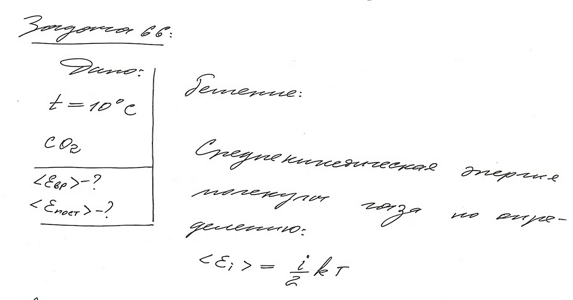 Задача 66:
Дано:
t = 10°C
CO₂
<εвр> - ?
<εпост> - ?
Решение:
Среднекинетическая энергия
молекулы газа по опре-
делению:
<εi> = i/2 kT